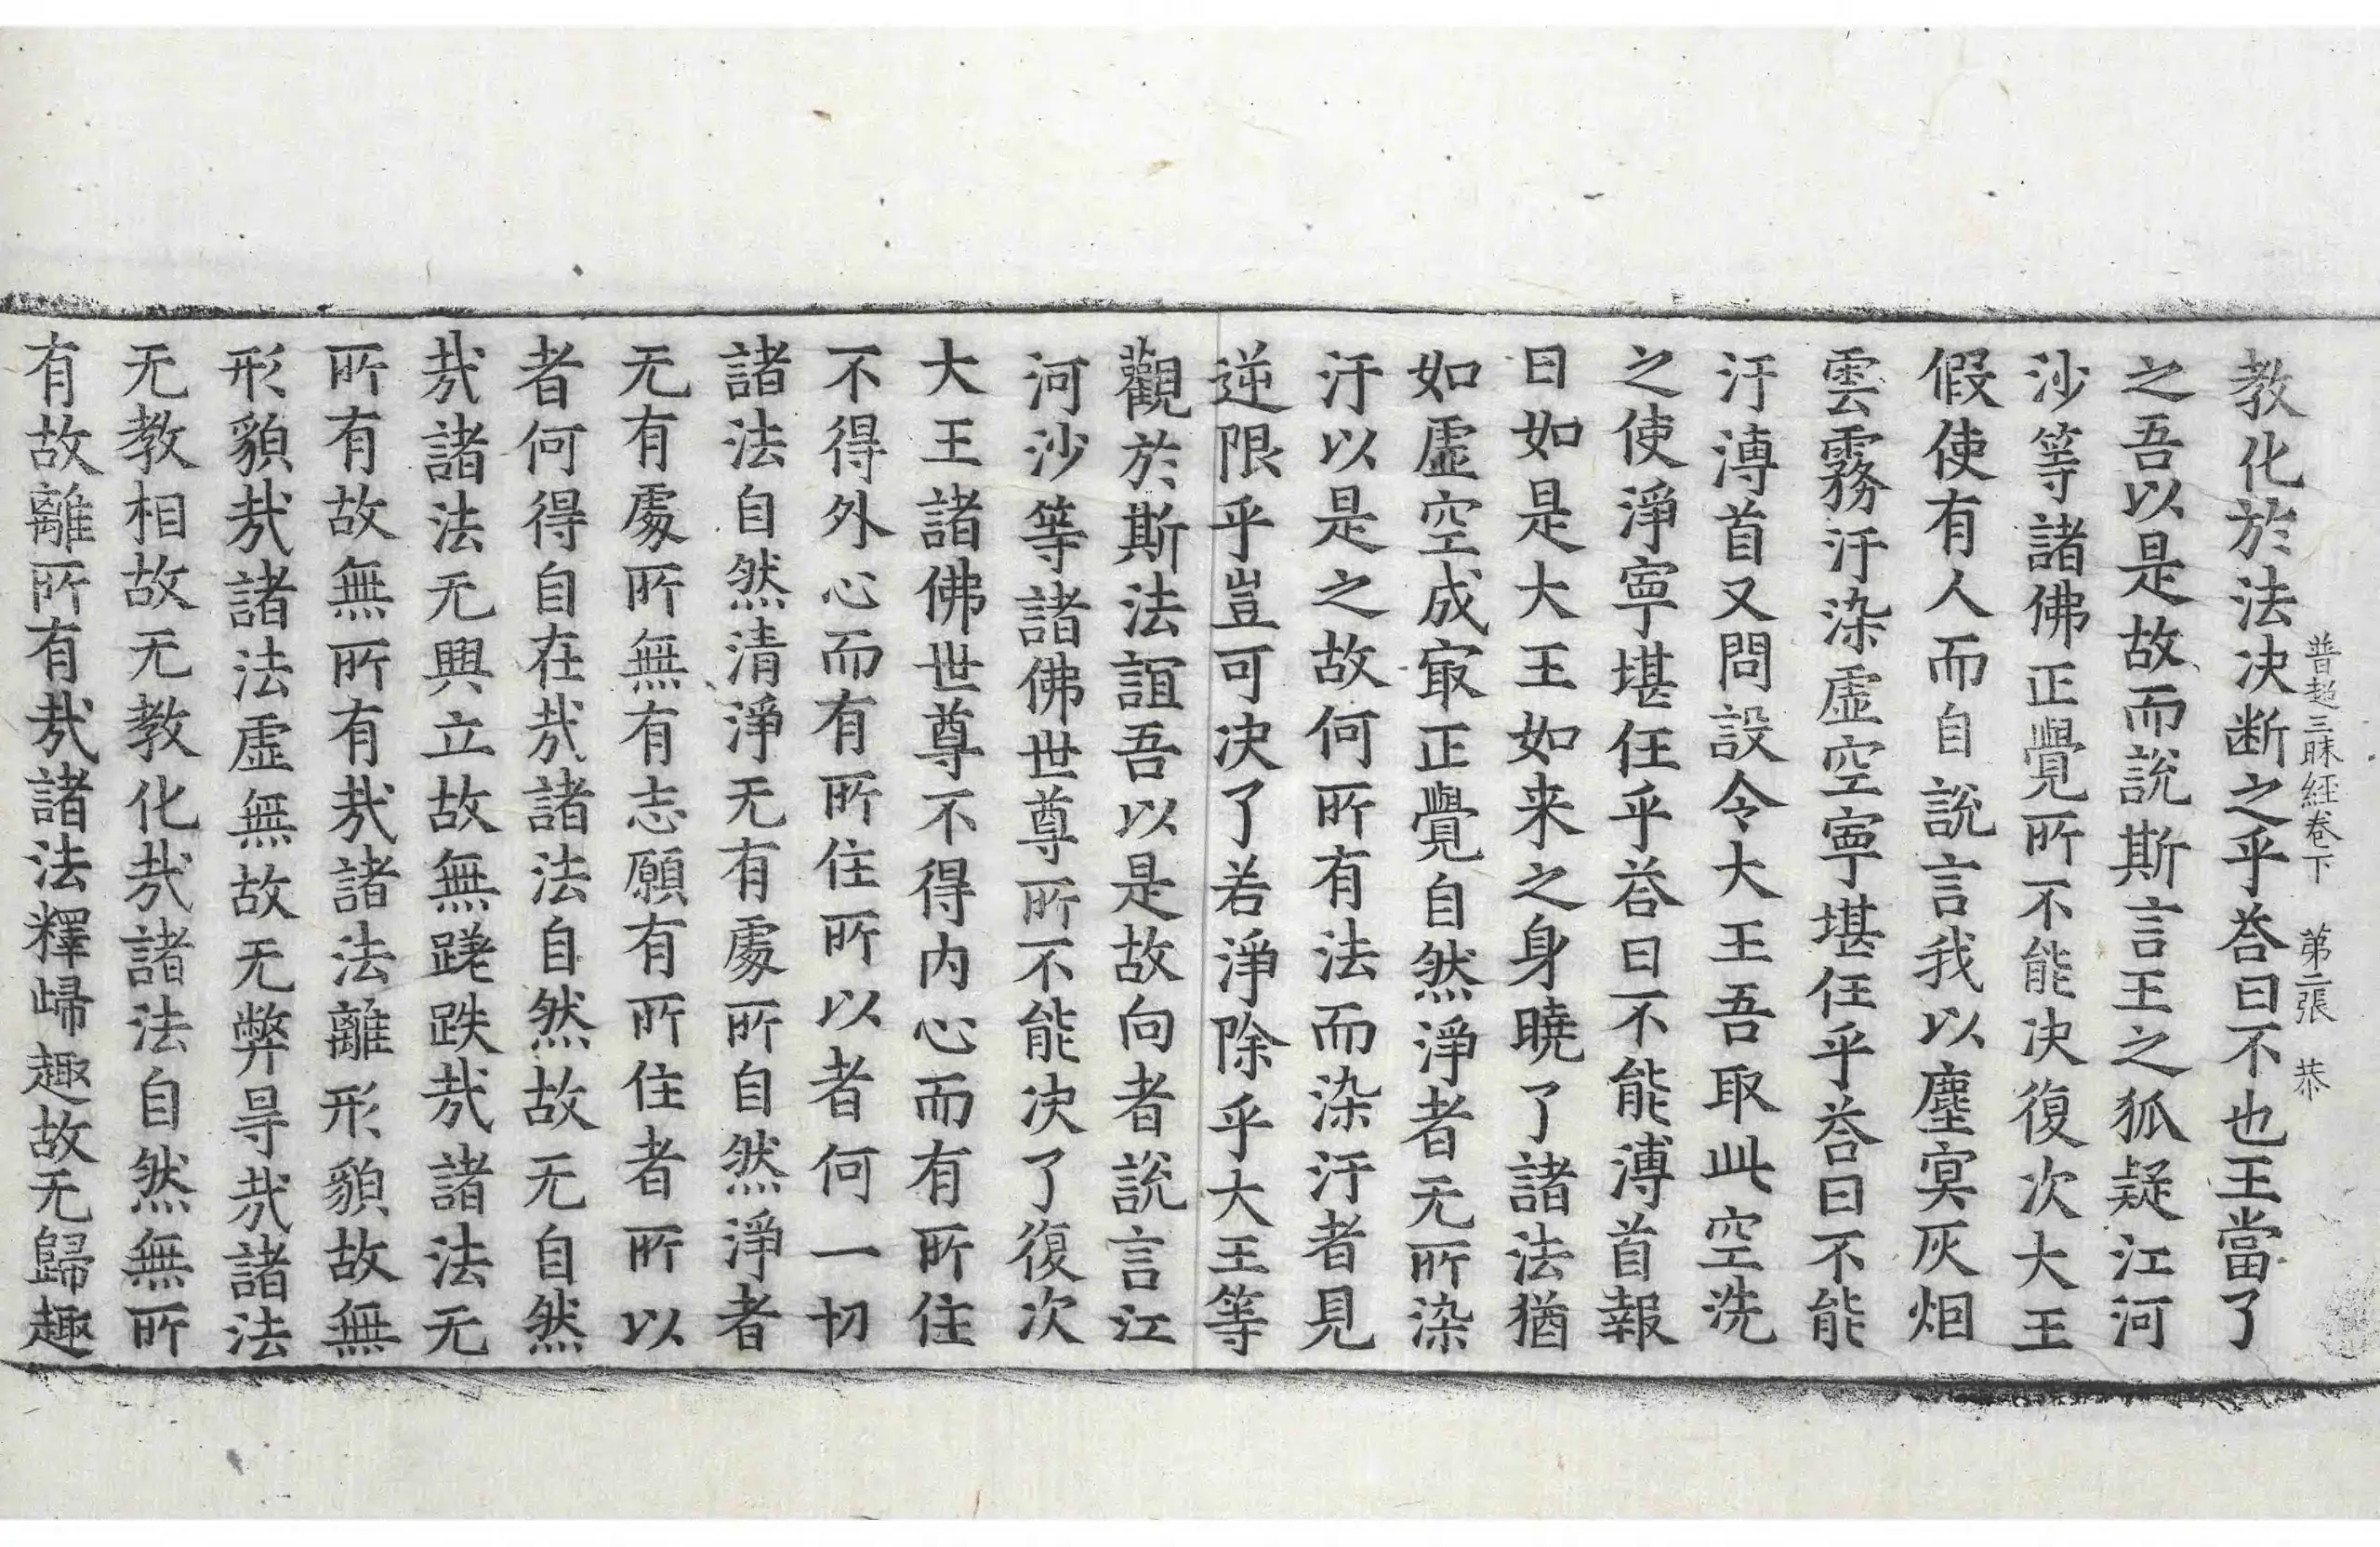 普超三昧経卷下　第二張　恭
教化於法决断之乎荅曰不也王當了
之吾以是故而說斯言王之狐疑江河
沙等諸佛正覺所不能决復次大王
假使有人而自說言我以塵冥灰烟
雲霧汙染虛空寧堪任乎荅曰不能
汙溥首又問設令大王吾取此空洗
之使淨寧堪任乎荅曰不能溥首報
曰如是大王如来之身曉了諸法猶
如虛空成冣正覺自然淨者无所染
汙以是之故何所有法而染汙者見
逆限乎豈可决了若淨除乎大王等
觀於斯法誼吾以是故向者說言江
河沙等諸佛世尊所不能决了復次
大王諸佛世尊不得内心而有所住
不得外心而有所住所以者何一切
諸法自然清淨无有處所自然淨者
无有處所無有志願有所住者所以
者何得自在㢤諸法自然故无自然
㢤諸法无興立故無蹉跌㢤諸法无
所有故無所有㢤諸法離形貌故無
形貌㢤諸法虛無故无弊㝵㢤諸法
无教相故无教化㢤諸法自然無所
有故離所有㢤諸法釋㱕趣故无歸趣